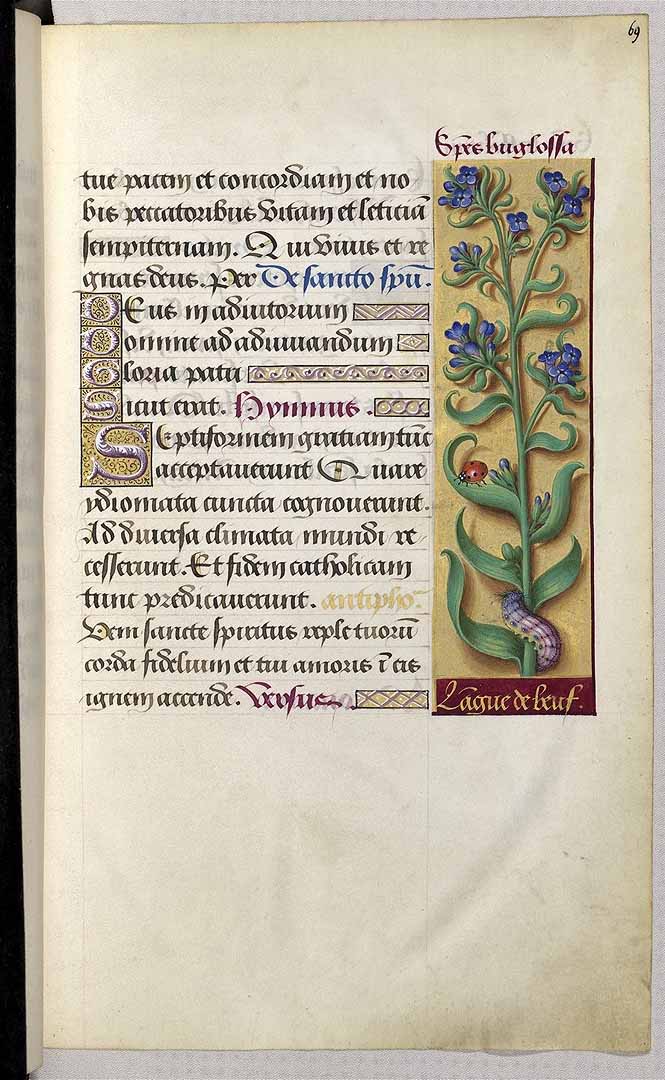 69
Spes buglossa
tue pacem et concordiam et no
bis peccatoribus vitam et leticiā
sempiternam. Qui viuis et re
gnas deus. per De sancto spū.
Deus in adiutorium
Domine ad adiuuandum
Gloria patri
Sicut erat. Hymnus.
Septiformem gratiam tūc
acceptauerunt Quare
ydiomata cuncta cognouerunt.
Ad diuersa climata mundi re
cesserunt Et fidem catholicam
tunc predicauerunt. antipho.
Veni sancte spiritus reple tuorū
corda fidelium et tui amoris ī eis
ignem accende. Versus
Lāgue de beuf.